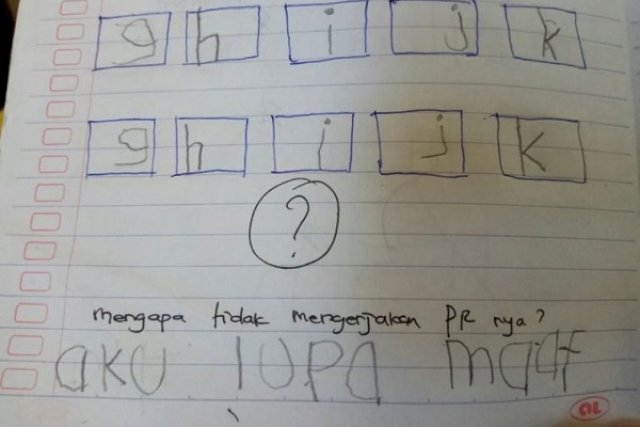 g h i j k
g h i j k
?
mengapa tidak mengerjakan PR nya?
aku lupa maaf